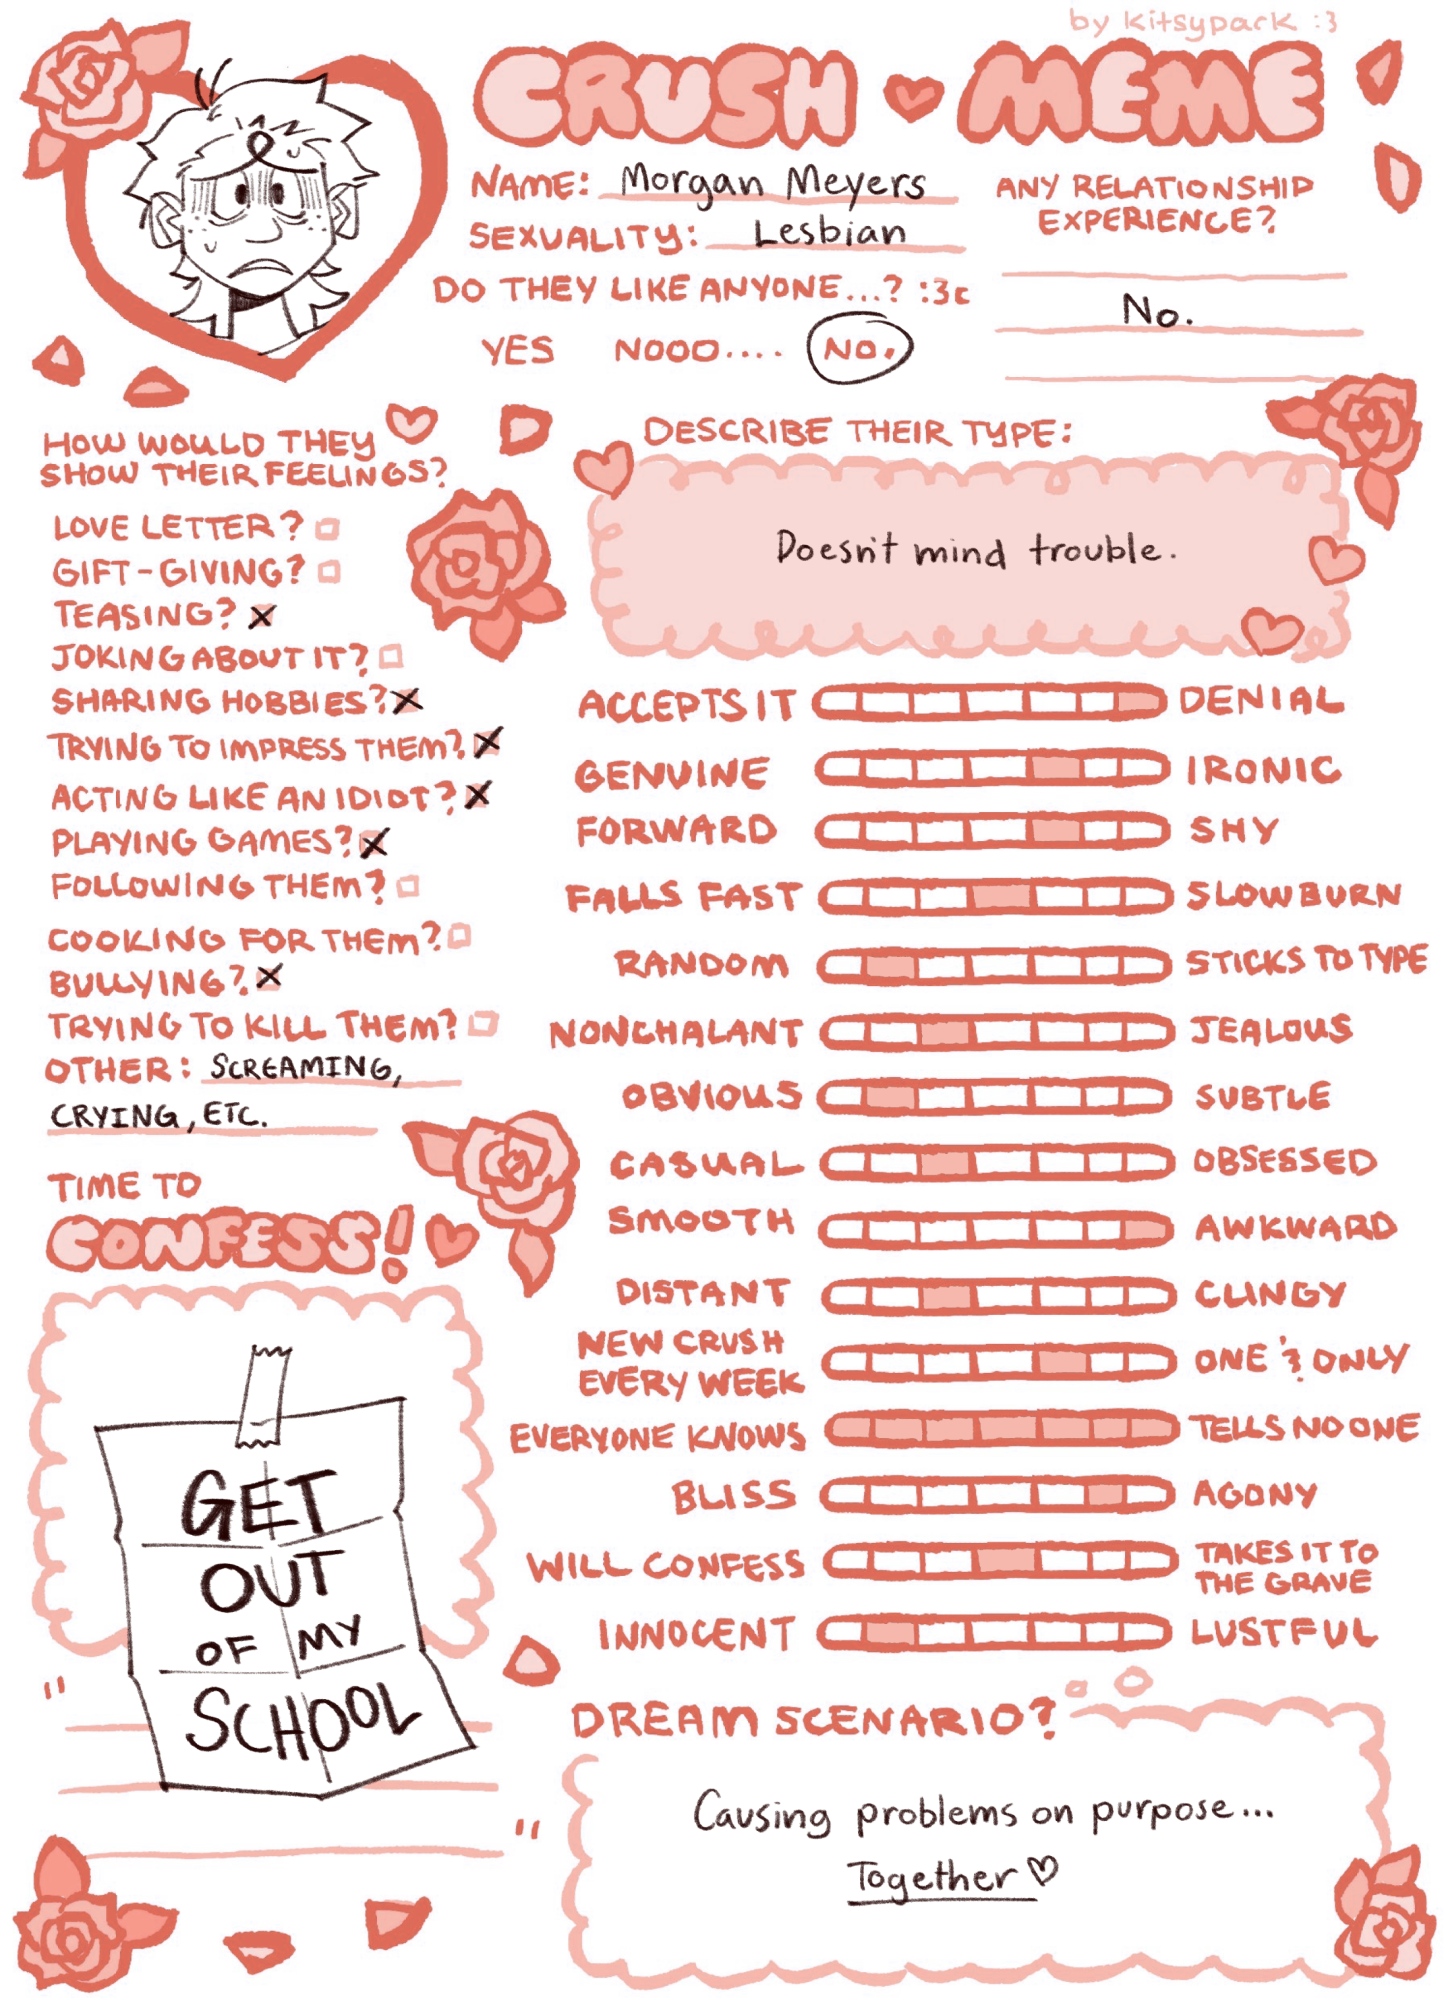 by kitsypack :3
CRUSH ♥ MEME
NAME: Morgan Meyers
SEXUALITY: Lesbian
DO THEY LIKE ANYONE...? :3c
YES NOOO.... NO.
ANY RELATIONSHIP
EXPERIENCE?
No.
HOW WOULD THEY
SHOW THEIR FEELINGS?
LOVE LETTER?
GIFT-GIVING?
TEASING? X
JOKING ABOUT IT?
SHARING HOBBIES? X
TRYING TO IMPRESS THEM? X
ACTING LIKE AN IDIOT? X
PLAYING GAMES? X
FOLLOWING THEM?
COOKING FOR THEM?
BULLYING? X
TRYING TO KILL THEM?
OTHER: SCREAMING,
CRYING, ETC.
DESCRIBE THEIR TYPE:
Doesn't mind trouble.
ACCEPTS IT DENIAL
GENUINE IRONIC
FORWARD SHY
FALLS FAST SLOWBURN
RANDOM STICKS TO TYPE
NONCHALANT JEALOUS
OBVIOUS SUBTLE
CASUAL OBSESSED
SMOOTH AWKWARD
DISTANT CLINGY
NEW CRUSH
EVERY WEEK ONE & ONLY
EVERYONE KNOWS TELLS NO ONE
BLISS AGONY
WILL CONFESS TAKES IT TO
THE GRAVE
INNOCENT LUSTFUL
TIME TO
CONFESS!
GET
OUT
OF MY
SCHOOL
" "
DREAM SCENARIO?
Causing problems on purpose...
Together ♡